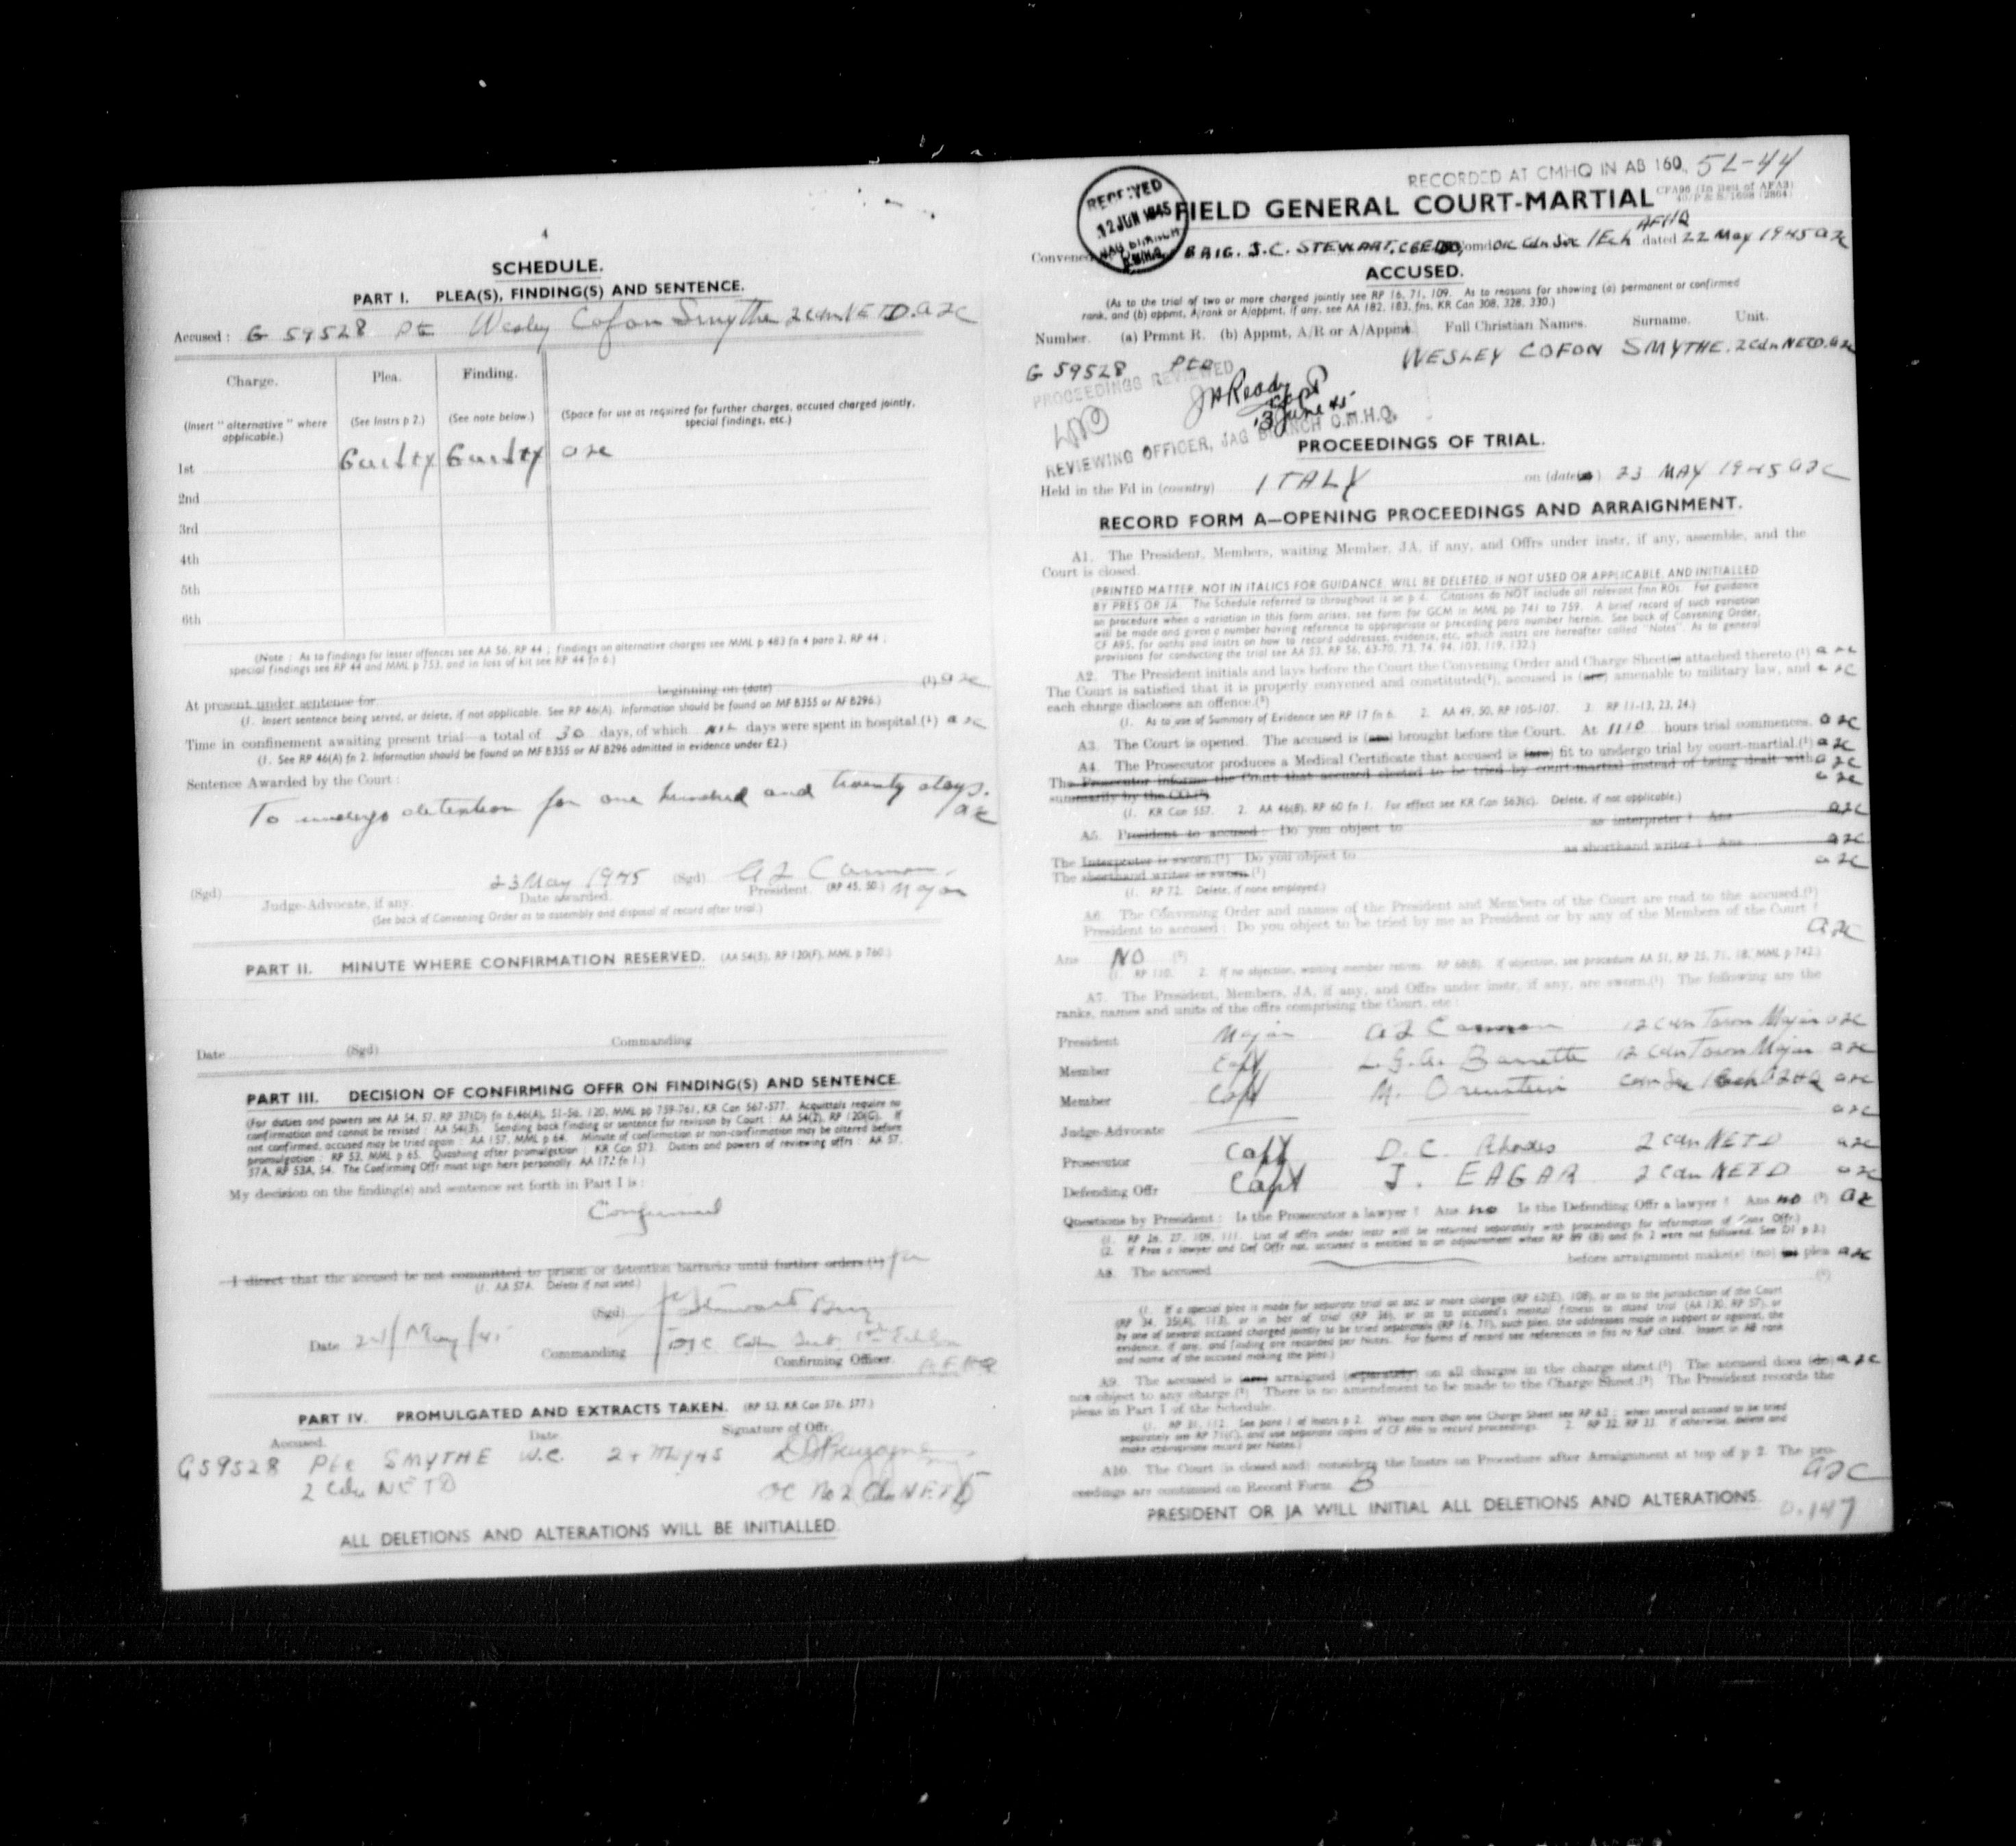 4
SCHEDULE.
PART I. PLEA(S), FINDING(S) AND SENTENCE.
Accused : G 59528 Pte Wesley Cofon Smythe 2 Cdn NETD. azc
Charge. Plea. Finding.
(Insert " alternative " where applicable.) (See Instrs p 2.) (See note below.) (Space for use as required for further charges, accused charged jointly, special findings, etc.)
1st Guilty Guilty azc
2nd
3rd
4th
5th
6th
(Note : As to findings for lesser offences see AA 56, RP 44 ; findings on alternative charges see MML p 483 fn 4 para 2, RP 44 ;
special findings see RP 44 and MML p 753, and in loss of kit see RP 44 fn 6.)
At present under sentence for beginning on (date) (1) azc
(1. Insert sentence being served, or delete, if not applicable. See RP 46(A). Information should be found on MF B355 or AF B296.)
Time in confinement awaiting present trial—a total of 30 days, of which NIL days were spent in hospital.(1) azc
(1. See RP 46(A) fn 2. Information should be found on MF B355 or AF B296 admitted in evidence under E2.)
Sentence Awarded by the Court :
To undergo detention for one hundred and twenty days.
azc
(Sgd) 23 May 1945 (Sgd) A Z Cannon, Major
Judge-Advocate, if any. Date awarded. President. (RP 45, 50.)
(See back of Convening Order as to assembly and disposal of record after trial.)
PART II. MINUTE WHERE CONFIRMATION RESERVED. (AA 54(5), RP 120(F), MML p 760.)
Date (Sgd) Commanding
PART III. DECISION OF CONFIRMING OFFR ON FINDING(S) AND SENTENCE.
(For duties and powers see AA 54, 57, RP 37(D) fn 6,46(A), 51-56, 120, MML pp 759-761, KR Can 567-577. Acquittals require no
confirmation and cannot be revised : AA 54(3). Sending back finding or sentence for revision by Court : AA 54(2), RP 120(G). If
not confirmed, accused may be tried again : AA 157, MML p 64. Minute of confirmation or non-confirmation may be altered before
promulgation : RP 53, MML p 65. Quashing after promulgation : KR Can 573. Duties and powers of reviewing offrs : AA 57,
57A, RP 53A, 54. The Confirming Offr must sign here personally. AA 172 fn 1.)
My decision on the finding(s) and sentence set forth in Part I is :
Confirmed
I direct that the accused be not committed to prison or detention barracks until further orders.(1)
(1. AA 57A. Delete if not used.)
(Sgd) Stewart Brig
Date 24/May/45 Commanding O i/c Cdn Sec 1st Echelon
Confirming Officer. AFHQ
PART IV. PROMULGATED AND EXTRACTS TAKEN. (RP 53, KR Can 576, 577.)
Accused. Date Signature of Offr.
G59528 Pte SMYTHE W.C. 24 May 45
2 Cdn NETD OC No 2 Cdn NETD
ALL DELETIONS AND ALTERATIONS WILL BE INITIALLED
RECORDED AT CMHQ IN AB 160. 52-44
RECEIVED
12 JUN 1945
JAG BRANCH
C.M.H.Q.
FIELD GENERAL COURT-MARTIAL
AFHQ
Convened BRIG. J.C. STEWART, CBE DSO, Comd OIC Cdn Sec 1 Ech dated 22 May 1945 azc
ACCUSED.
(As to the trial of two or more charged jointly see RP 16, 71, 109. As to reasons for showing (a) permanent or confirmed
rank, and (b) appmt, A/rank or A/appmt, if any, see AA 182, 183, fns, KR Can 308, 328, 330.)
Number. (a) Prmnt R. (b) Appmt, A/R or A/Appmt. Full Christian Names. Surname. Unit.
G 59528 Pte WESLEY COFON SMYTHE. 2 Cdn NETD. azc
PROCEEDINGS REVIEWED
Capt
13 June 45
REVIEWING OFFICER, JAG BRANCH C.M.H.Q.
PROCEEDINGS OF TRIAL.
Held in the Fd in (country) ITALY on (dates) 23 MAY 1945 azc
RECORD FORM A—OPENING PROCEEDINGS AND ARRAIGNMENT.
A1. The President, Members, waiting Member, JA, if any, and Offrs under instr, if any, assemble, and the
Court is closed.
(PRINTED MATTER, NOT IN ITALICS FOR GUIDANCE, WILL BE DELETED, IF NOT USED OR APPLICABLE, AND INITIALLED
BY PRES OR JA. The Schedule referred to throughout is on p 4. Citations do NOT include all relevant fnn ROs. For guidance
on procedure when a variation in this form arises, see form for GCM in MML pp 741 to 759. A brief record of such variation
will be made and given a number having reference to appropriate or preceding para number herein. See back of Convening Order,
CF A95, for oaths and instrs on how to record addresses, evidence, etc, which instrs are hereafter called "Notes". As to general
provisions for conducting the trial see AA 53, RP 56, 63-70, 73, 74, 94, 103, 119, 132.)
A2. The President initials and lays before the Court the Convening Order and Charge Sheet(s) attached thereto.(1) azc
The Court is satisfied that it is properly convened and constituted(2), accused is (are) amenable to military law, and azc
each charge discloses an offence.(3)
(1. As to use of Summary of Evidence see RP 17 fn 6. 2. AA 49, 50, RP 105-107. 3. RP 11-13, 23, 24.)
A3. The Court is opened. The accused is (are) brought before the Court. At 1110 hours trial commences. azc
A4. The Prosecutor produces a Medical Certificate that accused is (are) fit to undergo trial by court-martial.(1) azc
The Prosecutor informs the Court that accused elected to be tried by court-martial instead of being dealt with azc
summarily by the CO.(2) azc
(1. KR Can 557. 2. AA 46(8), RP 60 fn 1. For effect see KR Can 563(c). Delete, if not applicable.)
A5. President to accused : Do you object to as interpreter ? Ans azc
The Interpreter is sworn.(1) Do you object to as shorthand writer ? Ans azc
The shorthand writer is sworn.(1) azc
(1. RP 72. Delete, if none employed.)
A6. The Convening Order and names of the President and Members of the Court are read to the accused.(1)
President to accused : Do you object to be tried by me as President or by any of the Members of the Court ?
azc
Ans NO (2)
(1. RP 110. 2. If no objection, waiting member retires. RP 68(B). If objection, see procedure AA 51, RP 25, 71, 18, MML p 742.)
A7. The President, Members, JA, if any, and Offrs under instr, if any, are sworn.(1) The following are the
ranks, names and units of the offrs comprising the Court, etc :
President Major A Z Cannon 12 Cdn Town Major azc
Member Capt L.G.A. Barrette 12 Cdn Town Major azc
Member Capt M. Orenstein Cdn Sec 1 Ech AFHQ azc
Judge-Advocate azc
Prosecutor Capt D.C. Rhodes 2 Cdn NETD azc
Defending Offr Capt J. EAGAR 2 Cdn NETD azc
Questions by President : Is the Prosecutor a lawyer ? Ans no Is the Defending Offr a lawyer ? Ans no (2) azc
(1. RP 26, 27, 109, 111. List of offrs under instr will be returned separately with proceedings for information of Conv Offr.)
(2. If Pros a lawyer and Def Offr not, accused is entitled to an adjournment when RP 89 (B) and fn 2 were not followed. See D1 p 3.)
A8. The accused before arraignment make(s) (no) (a) plea azc
(1)
(1. If a special plea is made for separate trial on one or more charges (RP 62(E), 108), or as to the jurisdiction of the Court
(RP 34, 35(A), 113), or in bar of trial (RP 36), or as to accused's mental fitness to stand trial (AA 130, RP 57), or
by one of several accused charged jointly to be tried separately (RP 16, 71), such plea, the addresses made in support or against, the
evidence, if any, and finding are recorded per Notes. For forms of record see references in fns to RsP cited. Insert in A8 rank
and name of the accused making the plea.)
A9. The accused is (are) arraigned (separately) on all charges in the charge sheet.(1) The accused does (do) azc
not object to any charge.(2) There is no amendment to be made to the Charge Sheet.(2) The President records the
pleas in Part I of the Schedule.
(1. RP 31, 112. See para 1 of Instrs p 2. When more than one Charge Sheet see RP 62 ; when several accused to be tried
separately see RP 71(C), and use separate copies of CF A96 to record proceedings. 2. RP 32, RP 33. If otherwise, delete and
make appropriate record per Notes.)
A10. The Court (is closed and) considers the Instrs on Procedure after Arraignment at top of p 2. The pro-
ceedings are continued on Record Form B azc
PRESIDENT OR JA WILL INITIAL ALL DELETIONS AND ALTERATIONS.
0.147